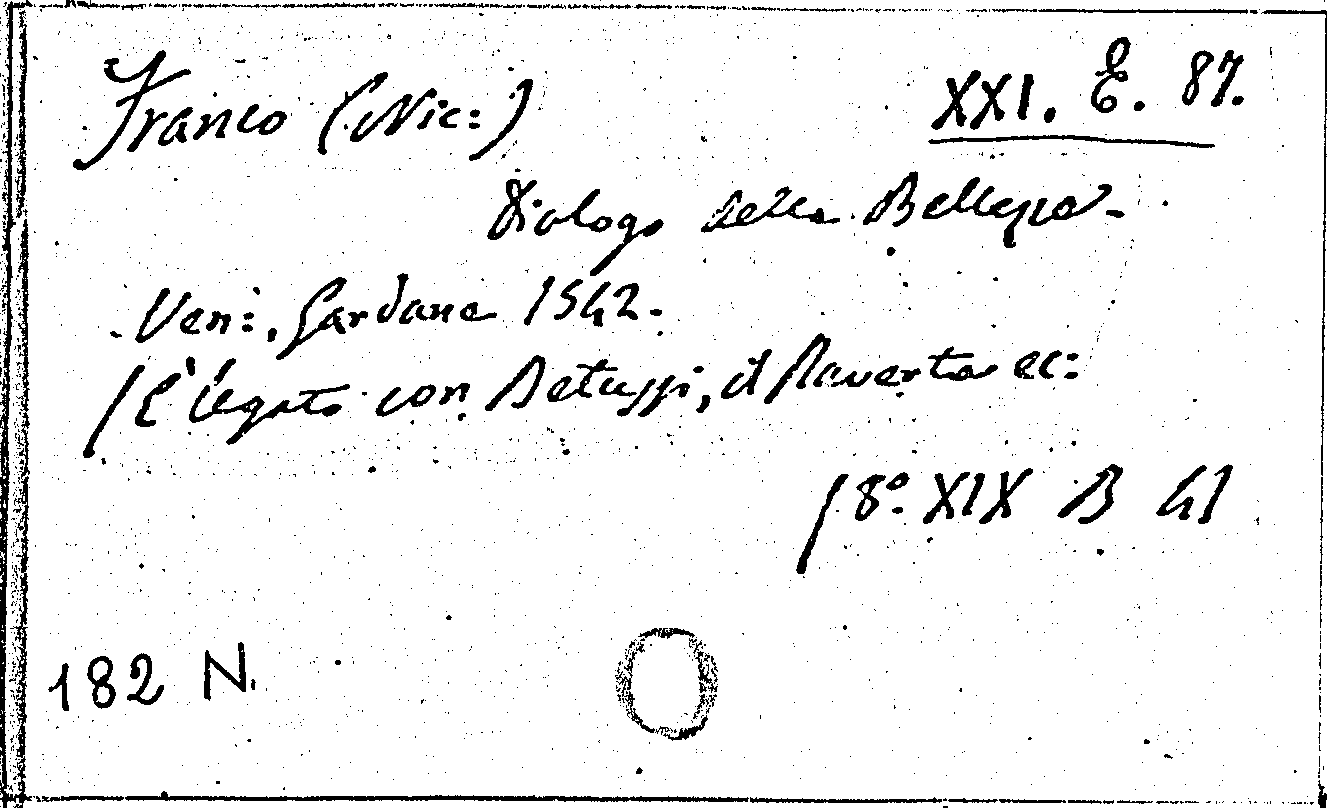 Franco (Nic:)
XXI. E. 87.
Dialogo della Bellezza.
Ven:, Gardane 1542.
(È legato con Betuzzi, il Raverta ec:
(8º XIX B 41
182 N.